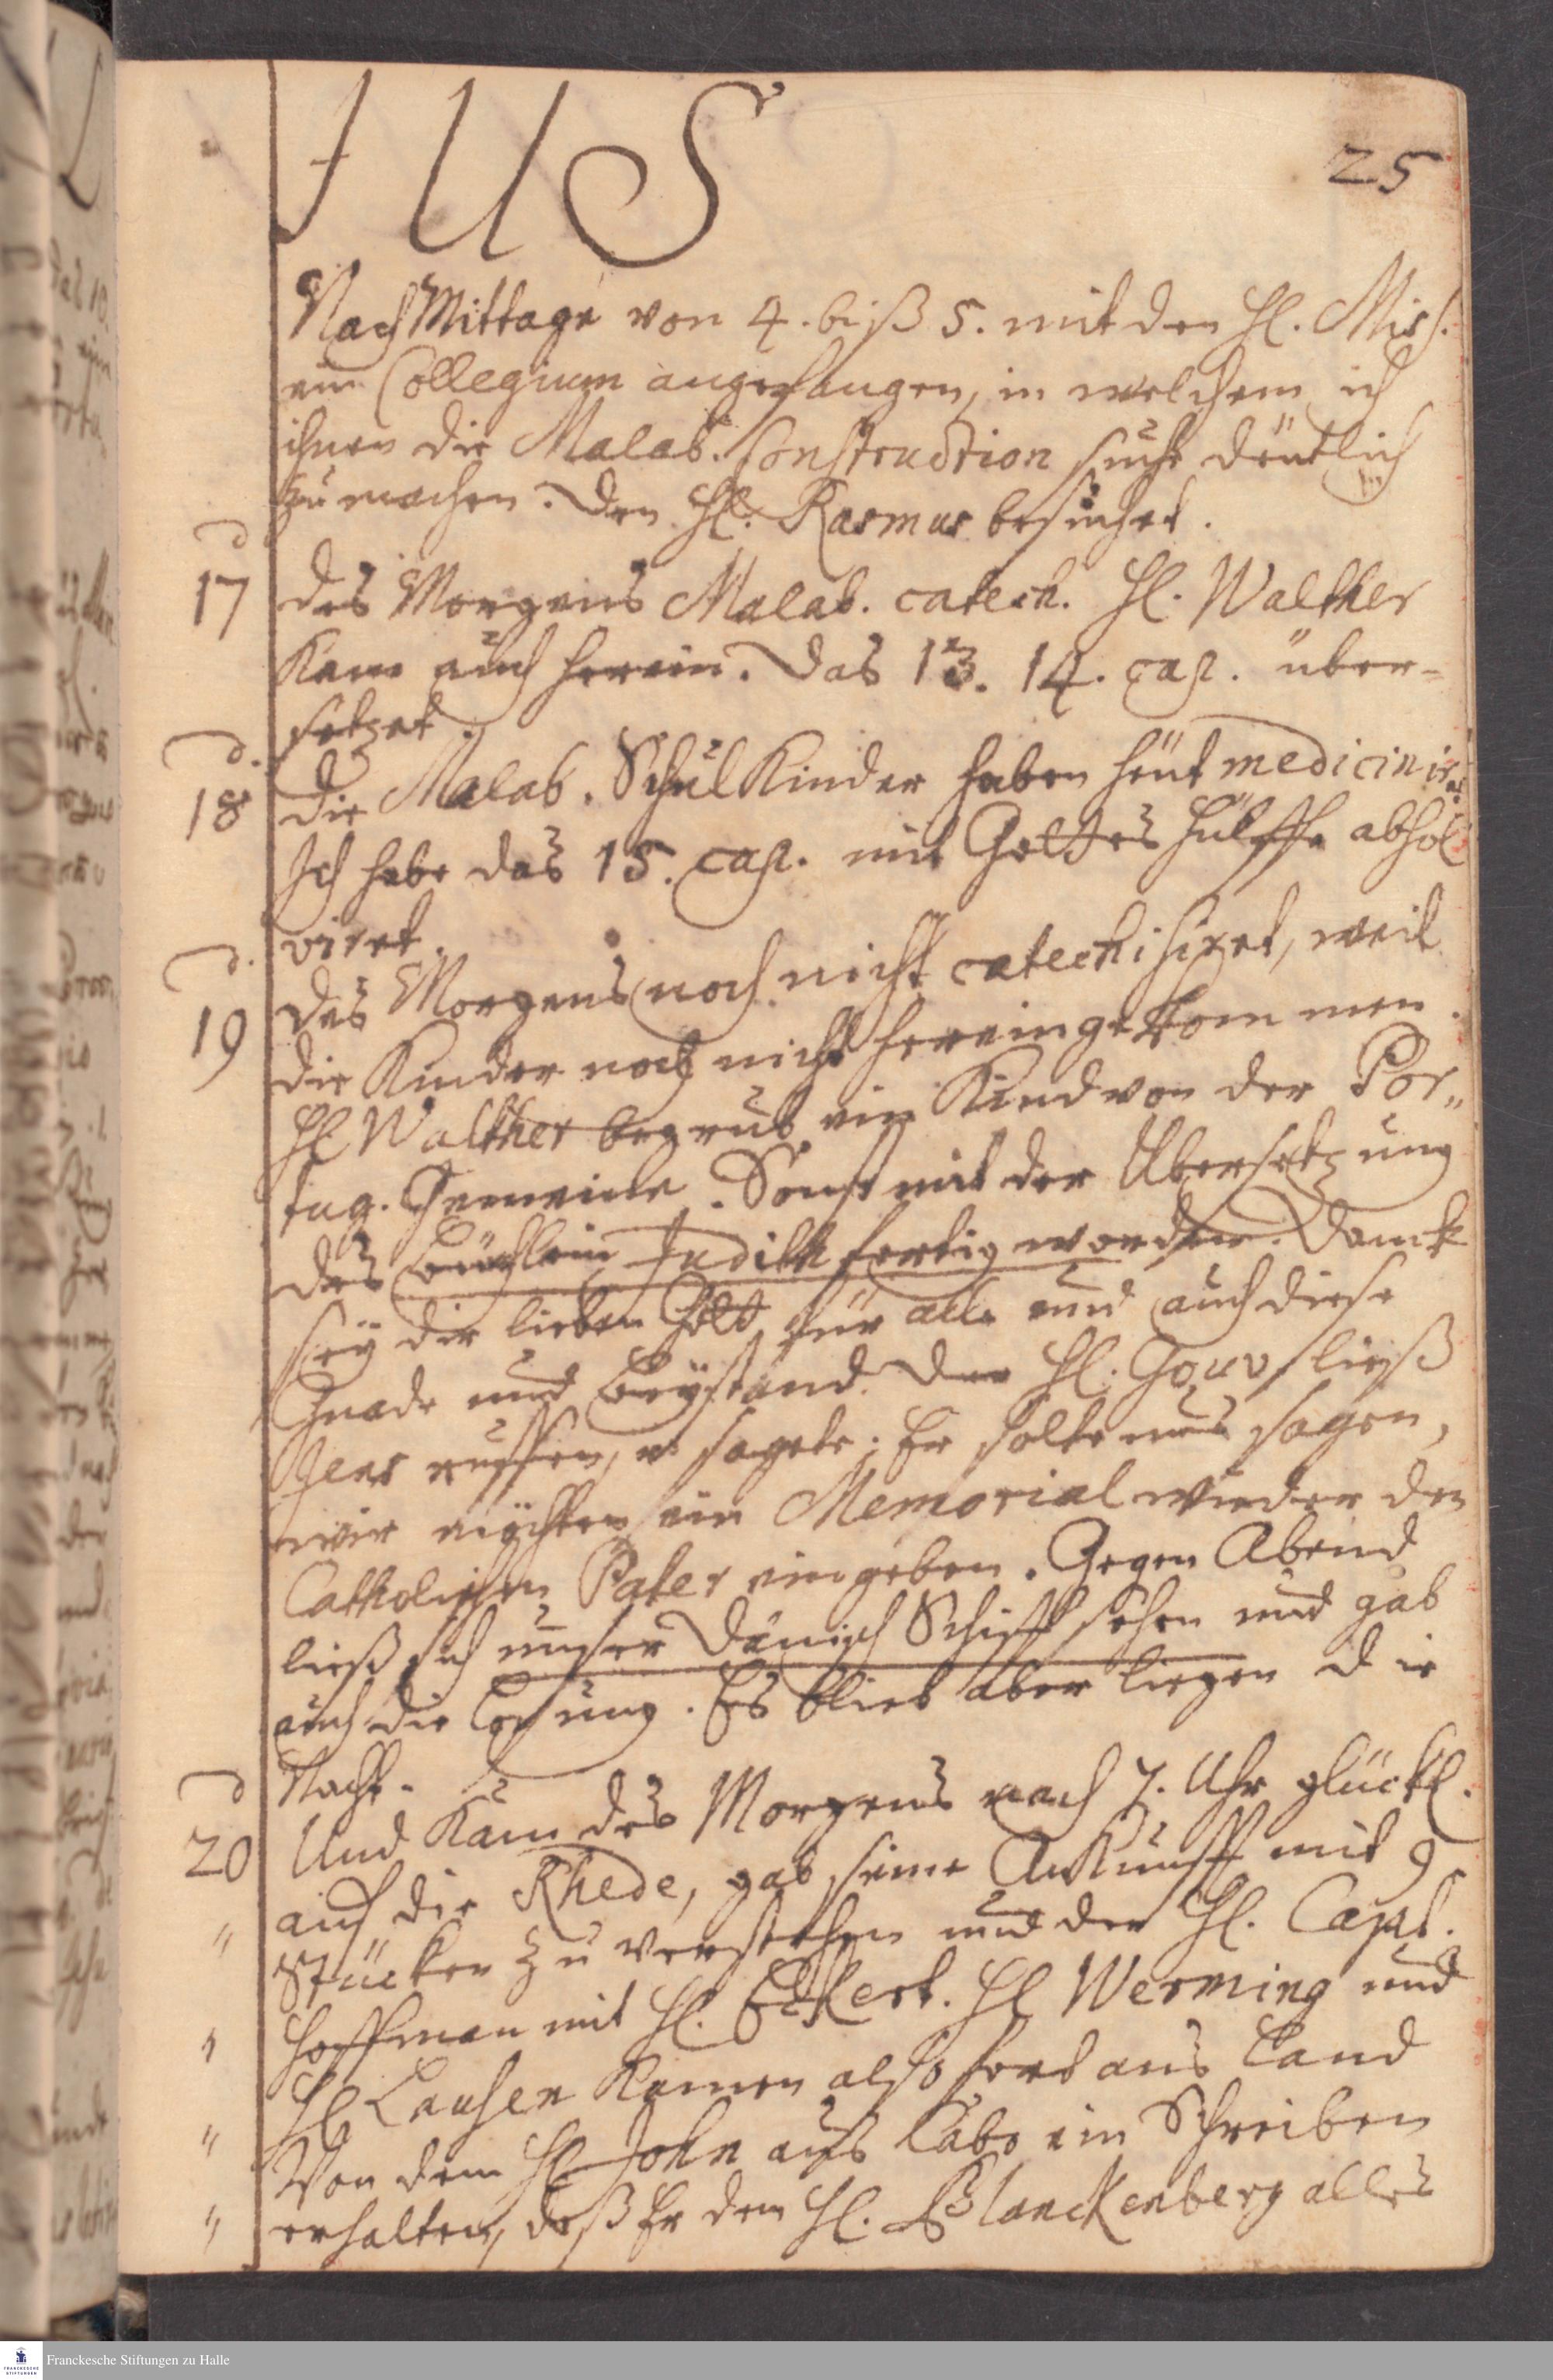 JUS
25
NachMittage von 4. biß 5. mit den Hl. Miss.
ein Collegium angefangen, in welchem ich
ihnen die Malab. Construction suche deutlich
zu machen. Den Hl. Rasmus besuchet.
d
17 Des Morgens Malab. catech. Hl. Walther
kam auch herein. Das 13. 14. cap. über-
setzet.
d.
18 Die Malab. SchulKinder haben heut medicinir
et
Ich habe das 15. cap. mit Gottes Hülffe absol
viret.
d.
19 Des Morgens noch nicht catechisiret, weil
die Kinder noch nicht hereingekommen.
Hl Walther begrub ein Kind von der Por„
tug. Gemeine. Sonst mit der Übersetzung
des Büchlein Judith fertig worden. Danck
sey dir lieben Gott für alle und auch diese
Gnade und Beystand. Der Hl. Gouv. ließ
Jens ruffen, u. sagete: Er solte uns sagen,
wir möchten ein Memorial wieder den
Catholischen Pater eingeben. Gegen Abend
ließ sich unser Dänisch Schiff sehen und gab
auch die Losung. Es blieb aber liegen die
Nacht.
d
20 Und kam des Morgens nach 7. Uhr glückl.
auf die Rhede, gab seine Ankunfft mit 9
" Stücken zu verstehen und der Hl. Capt.
Hoffman mit Hl. Eckert. Hl Werming und
Hl Lausen kamen also fort ans Land
" Von dem Hl John aus Cabo ein Schreiben
" erhalten, daß Er dem Hl. Blanckenberg alles
Franckesche Stiftungen zu Halle